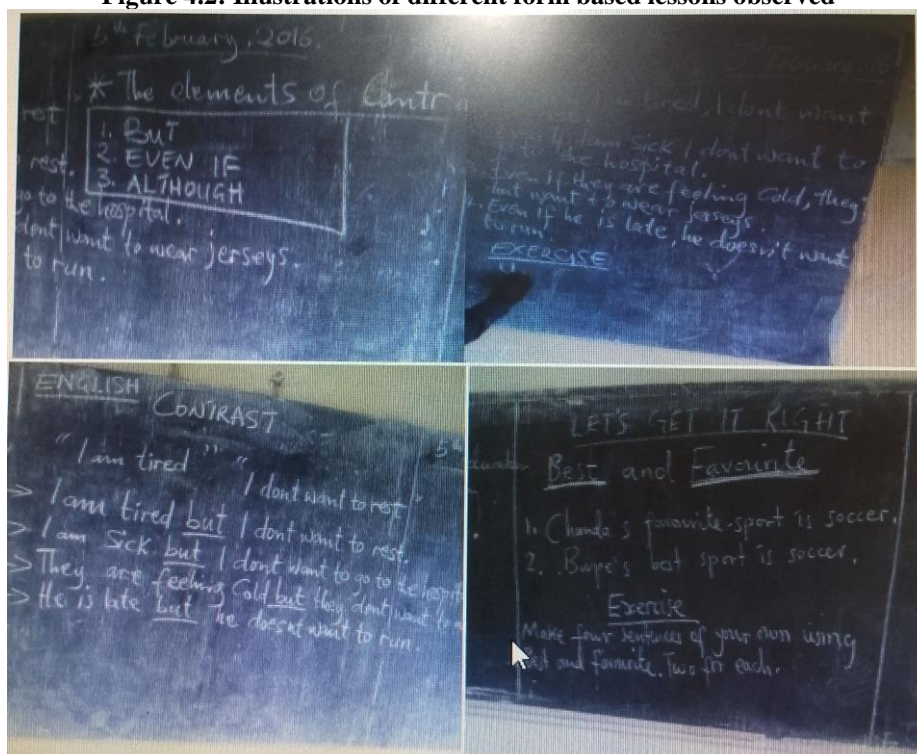 Figure 4.2: Illustrations of different form based lessons observed
5th February, 2016.
* The elements of Contra
1. BUT
2. EVEN IF
3. ALTHOUGH
rest
rest.
go to the hospital.
dont want to wear jerseys.
to run.
February 16
tired, I dont want
I am sick I dont want to
the hospital.
Even if they are feeling Cold, they
dont want to wear jerseys.
Even if he is late, he doesn't want
to run.
EXERCISE
ENGLISH
CONTRAST
"I am tired" "I dont want to rest"
5th
> I am tired but I dont want to rest.
> I am Sick but I dont want to go to the hospit
> They are feeling Cold but they dont want to
> He is late but he doesnt want to run.
LET'S GET IT RIGHT
Best and Favourite
1. Chanda's favourite sport is soccer.
2. Bupe's best sport is soccer.
Exercise
Make four sentences of your own using
best and favourite. Two for each.